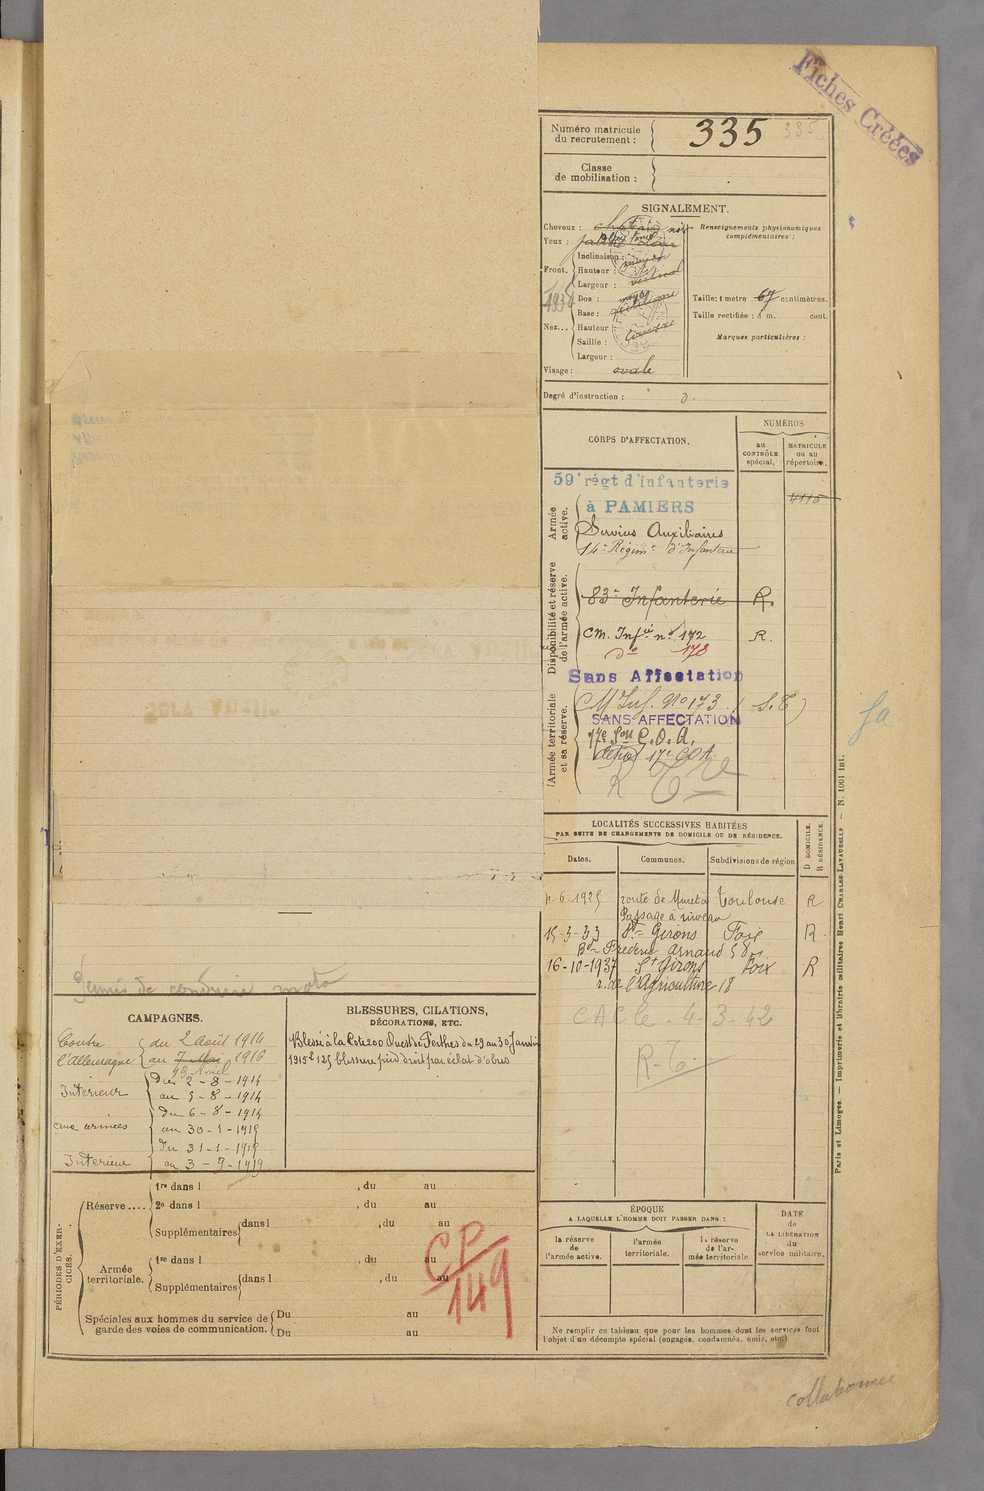 Fiches Créées
Numéro matricule
du recrutement :
335
335
Classe
de mobilisation :
SIGNALEMENT.
Cheveux : châtain noir
Yeux :
Renseignements physionomiques
complémentaires :
Front.
Inclinaison : moyen
Hauteur : vertical
Largeur :
Nez...
Dos : moyen
Base :
Hauteur :
Saillie :
Largeur :
Taille : 1 mètre 67 centimètres.
Taille rectifiée : 1 m. cent.
Marques particulières :
Visage : ovale
Degré d'instruction :
CORPS D'AFFECTATION.
NUMÉROS
au
CONTRÔLE
spécial.
MATRICULE
ou au
répertoire.
Armée
active.
59e régt d'infanterie
à PAMIERS
4115
Services Auxiliaires
14e Régimt d'Infanterie
Disponibilité et réserve
de l'armée active.
83e Infanterie R.
CM. Infie n° 172 R.
de 173
Sans Affectation
Armée territoriale
et sa réserve.
CM Inf. N° 173 (S.T)
SANS AFFECTATION
17e Son C.O.A.
dépôt 17e COA
LOCALITÉS SUCCESSIVES HABITÉES
PAR SUITE DE CHANGEMENTS DE DOMICILE OU DE RÉSIDENCE.
Dates.
Communes.
Subdivisions de région
D DOMICILE.
R RÉSIDENCE.
route de Muret à Toulouse R
Passage à niveau
15-3-33 St Girons Foix R
Bd Frédéric Arnaud
16-10-1937 St Girons Foix R
r. de l'Agriculture 18
CACle. 4-3-42
R-T.
Permis de conduire moto
CAMPAGNES.
Contre
l'Allemagne
du 2 Août 1914
au 7 Mai 1916
Intérieur
Du 2-8-1914
au 5-8-1914
aux armées
Du 6-8-1914
au 30-1-1919
Intérieur
Du 31-1-1919
au 3-9-1919
BLESSURES, CITATIONS,
DÉCORATIONS, ETC.
Blessé à la Cote 200 Ouest de Perthes du 29 au 30 Janvier
blessure pied droit par éclat d'obus
PÉRIODES D'EXER-
CICES.
Réserve....
1re dans l , du au
2e dans l , du au
Supplémentaires dans l , du au
Armée
territoriale.
1re dans l , du au
Supplémentaires dans l , du au
Spéciales aux hommes du service de
garde des voies de communication.
Du au
Du au
CP
149
ÉPOQUE
A LAQUELLE L'HOMME DOIT PASSER DANS :
la réserve
de
l'armée active.
l'armée
territoriale.
la réserve
de l'ar-
mée territoriale
DATE
de
LA LIBÉRATION
du
service militaire.
Ne remplir ce tableau que pour les hommes dont les services font
l'objet d'un décompte spécial (engagés, condamnés, omis, etc.)
Paris et Limoges. — Imprimerie et librairie militaires Henri CHARLES-LAVAUZELLE — N. 1001 int.